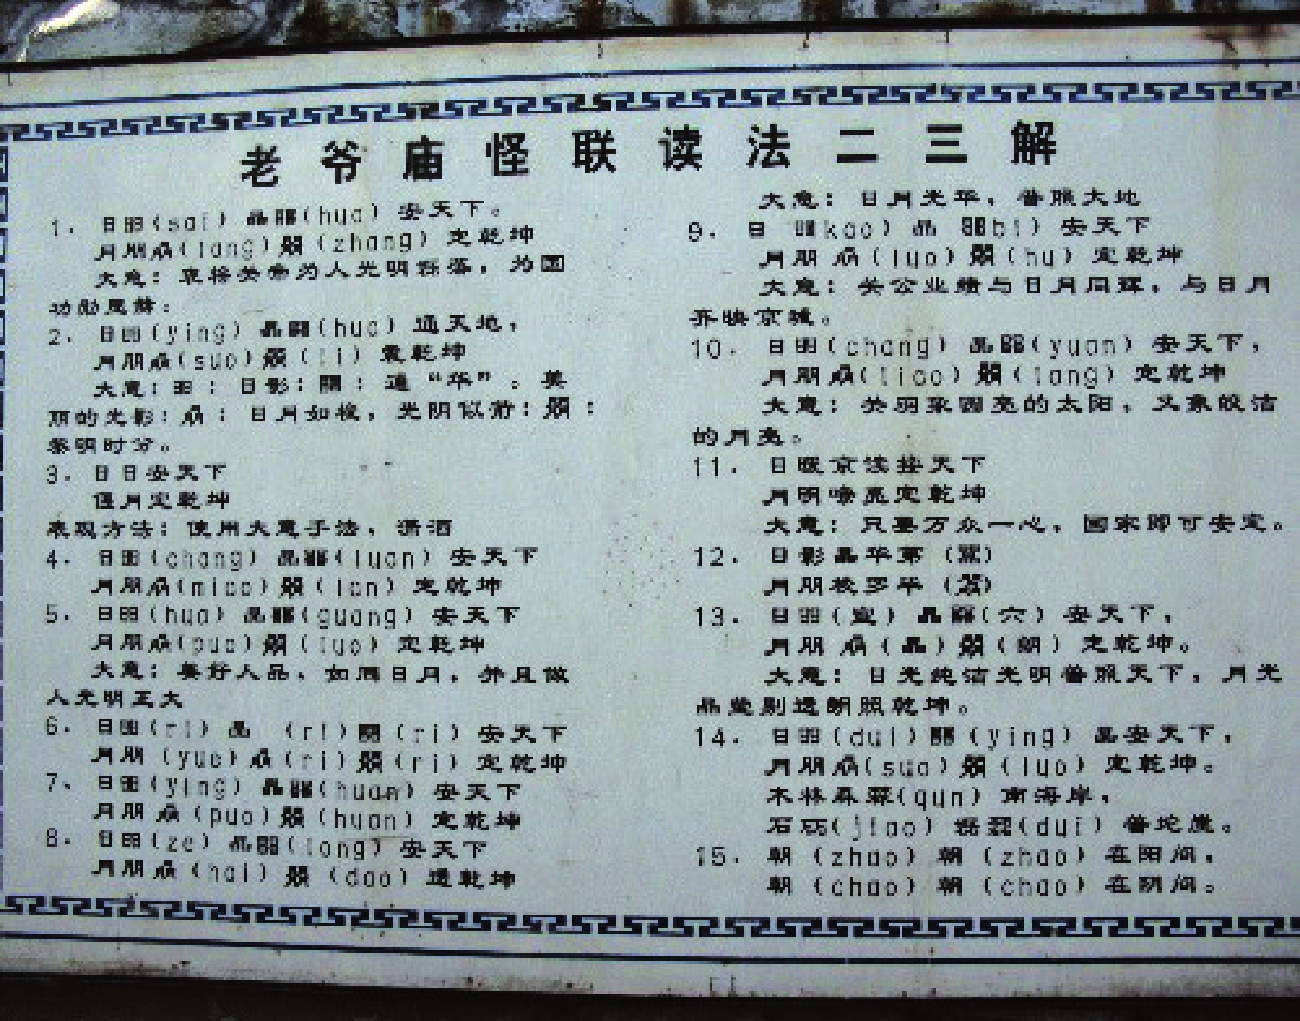 老爷庙怪联读法二三解
1. 日昍(sai) 晶(hua) 安天下。
月朋(lang)朤(zhang) 定乾坤
大意: 关帝为人光明磊落, 为国
功勋
2. 日昍(ying) 晶(hua) 通天地,
月朋(suo)朤(li) 震乾坤
大意: 昍: 日影: : 通“华”。美
丽的光影: : 日月如梭, 光阴似箭: 朤:
黎明时分。
3. 日日安天下
月定乾坤
表现方法: 使用大意手法, 潇洒
4. 日昍(chang) 晶(luan) 安天下
月朋(miao)朤(lan) 定乾坤
5. 日昍(hua) 晶(guang) 安天下
月朋(puo)朤(luo) 定乾坤
大意: 要好人品, 如同日月, 并且做
人光明正大
6. 日昍(ri) 晶 (ri) (ri) 安天下
月朋 (yue) (ri)朤(ri) 定乾坤
7. 日昍(ying) 晶(huan) 安天下
月朋 (puo)朤(huan) 定乾坤
8. 日昍(ze) 晶(tong) 安天下
月朋 (hai) 朤 (dao) 通乾坤
大意: 日月光华, 普照大地
9. 日 昍kao) 晶 bi) 安天下
月朋 (luo) 朤(hu) 定乾坤
大意: 关公业绩与日月同辉, 与日月
齐映京城。
10. 日昍(chang) 晶(yuan) 安天下,
月朋(liao) 朤(lang) 定乾坤
大意: 关羽象圆亮的太阳, 又象皎洁
的月亮。
11. 日暖京读按天下
月明喷亮定乾坤
大意: 只要万众一心, 国家即可安定。
12. 日影晶华第
月朋梭罗毕
13. 日昍(宣) 晶(六) 安天下,
月朋 (晶) 朤(朗) 定乾坤。
大意: 日光纯洁光明普照天下, 月光
晶莹剔透朗照乾坤。
14. 日昍(dui) (ying) 晶安天下,
月朋(suo) 朤(luo) 定乾坤。
木林森(qun) 南海岸,
石(jiao) 磊(dui) 普坨崖。
15. 朝 (zhao) 朝 (zhao) 在阳间,
朝 (chao) 朝 (chao) 在阴间。